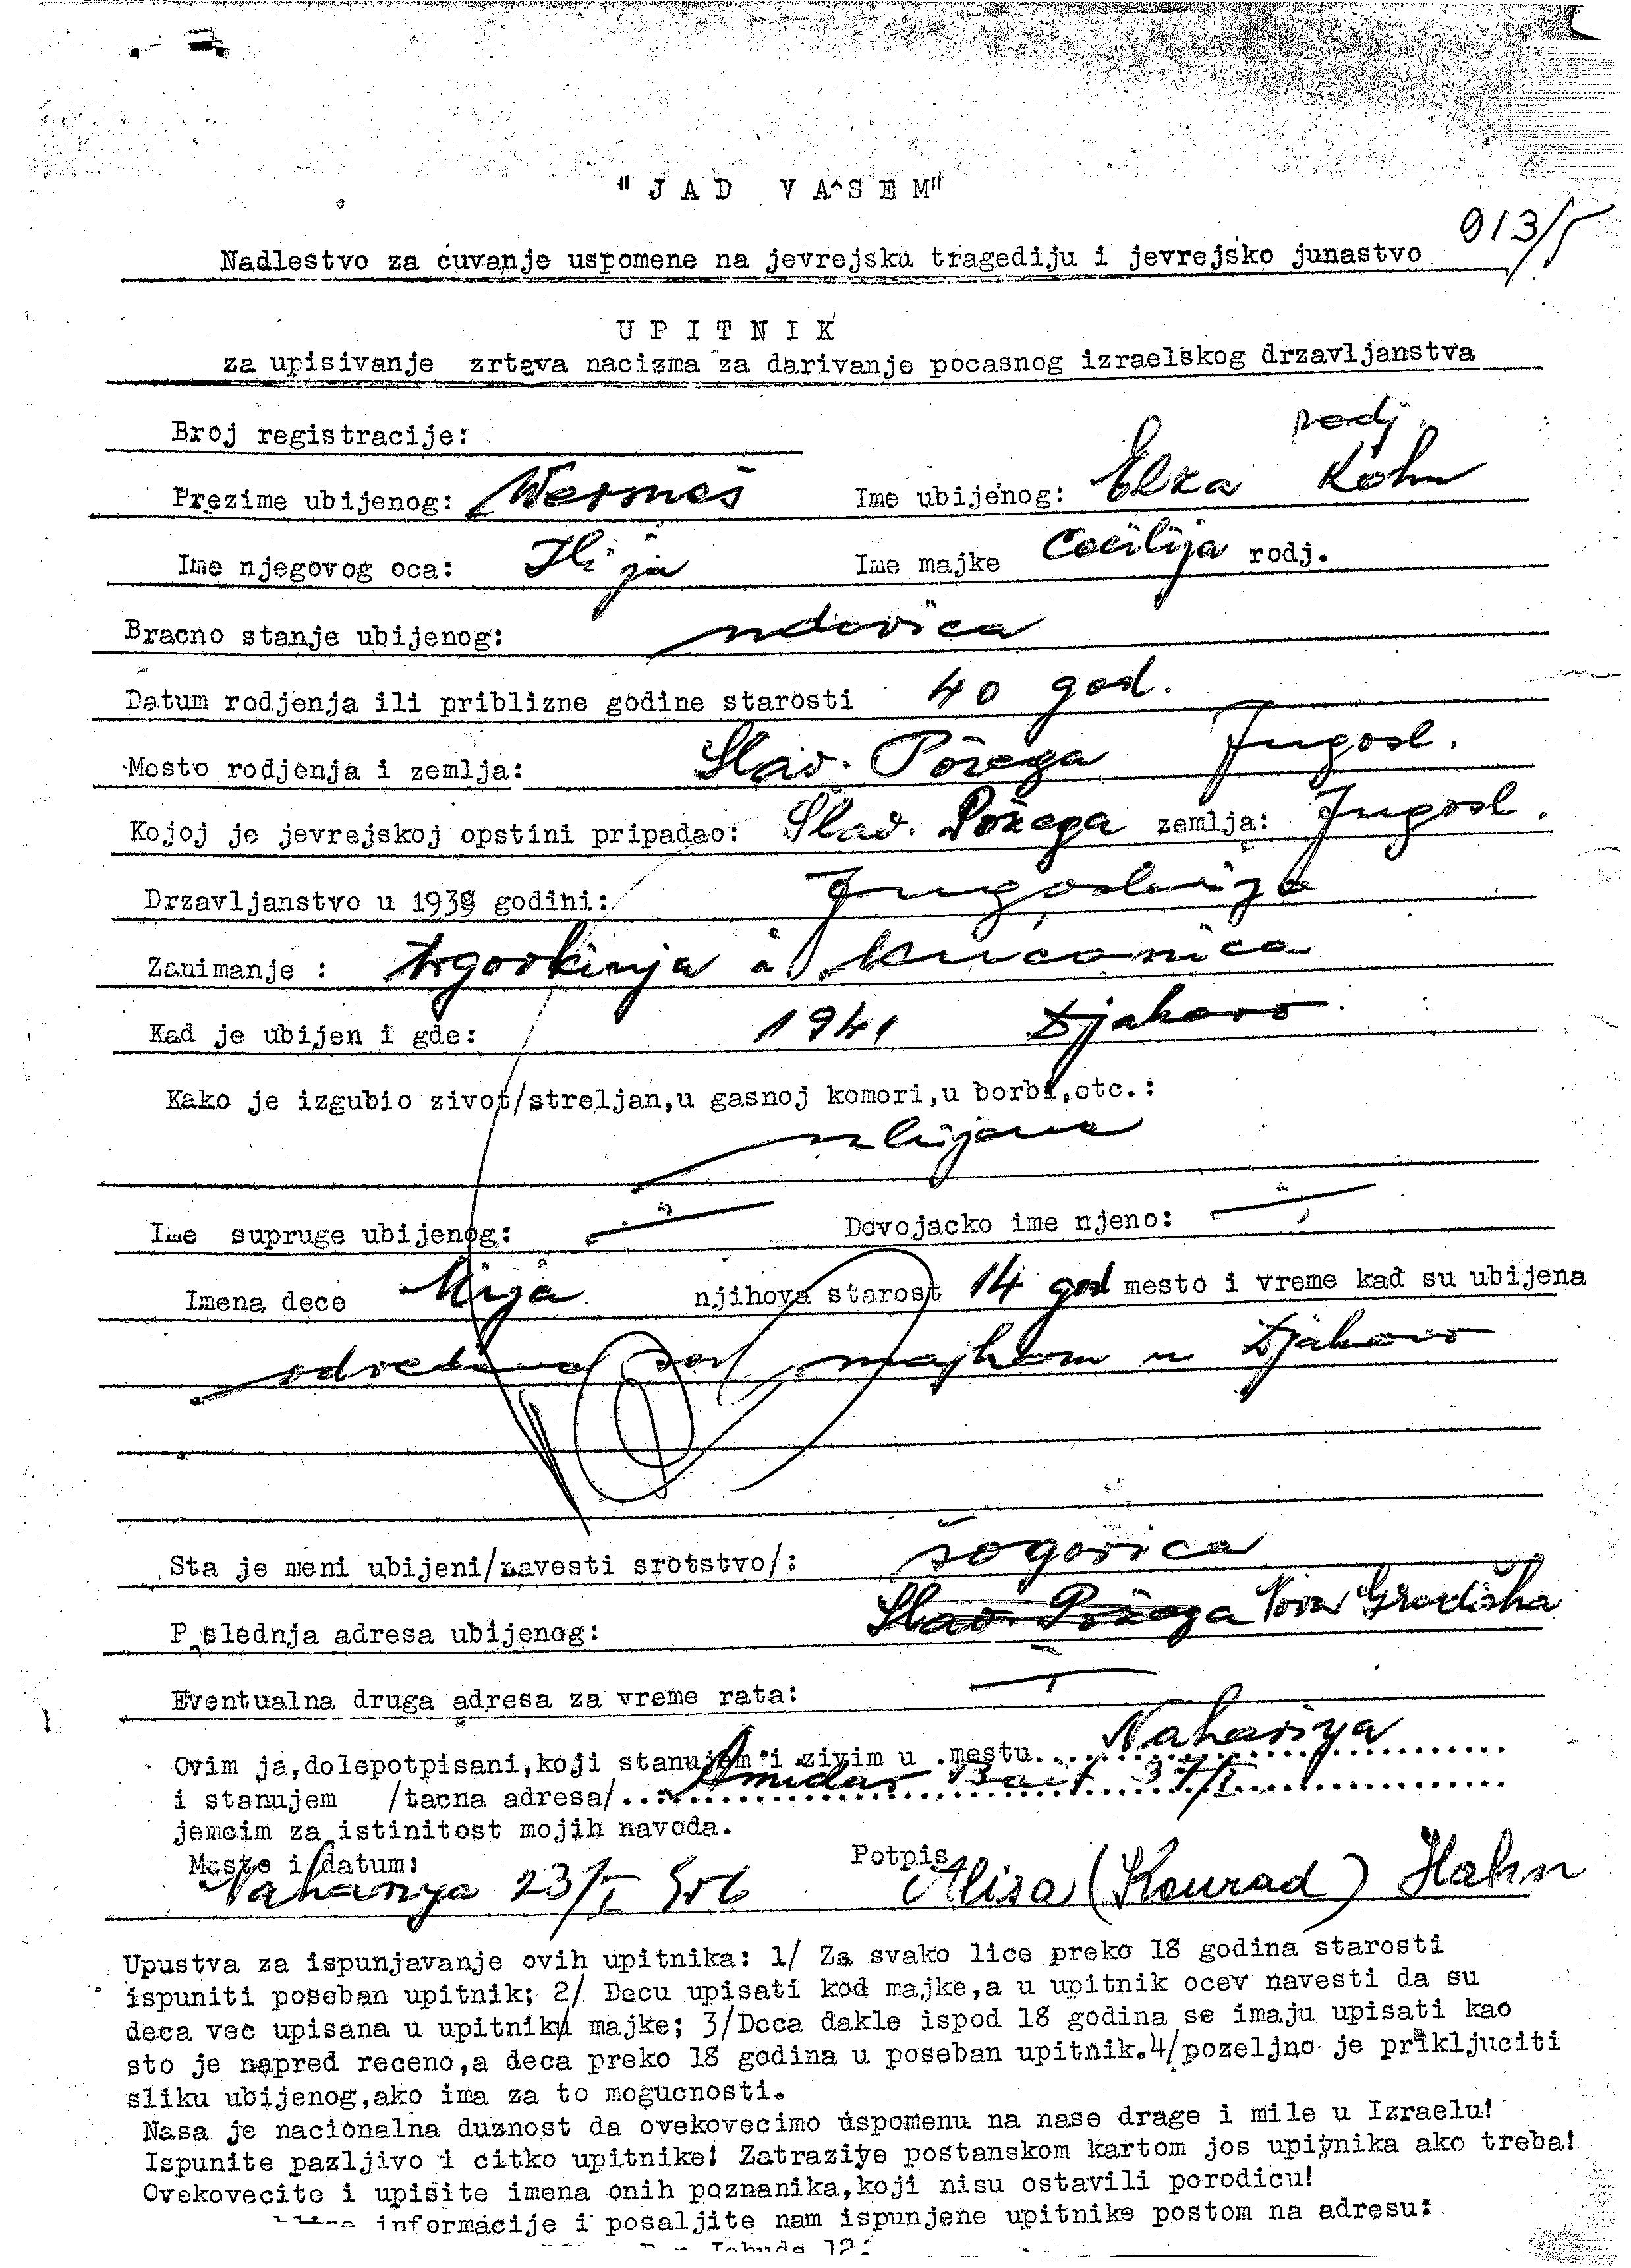 "JAD VAŠEM"
913/5
Nadlestvo za cuvanje uspomene na jevrejsku tragediju i jevrejsko junastvo
UPITNIK
za upisivanje zrtava nacizma za darivanje pocasnog izraelskog drzavljanstva
Broj registracije:
Prezime ubijenog: Wermeš Ime ubijenog: Elza rodj. Kohn
Ime njegovog oca: Ilija Ime majke Cecilija rodj.
Bracno stanje ubijenog: udovica
Datum rodjenja ili priblizne godine starosti 40 god.
Mesto rodjenja i zemlja: Slav. Požega Jugosl.
Kojoj je jevrejskoj opstini pripadao: Slav. Požega zemlja: Jugosl.
Drzavljanstvo u 1939 godini: Jugoslavija
Zanimanje : trgovkinja i kućanica
Kad je ubijen i gde: 1941 Djakovo
Kako je izgubio zivot/streljan,u gasnoj komori,u borbi,etc.:
ubijena
Ime supruge ubijenog: Devojacko ime njeno:
Imena dece Mija njihova starost 14 god mesto i vreme kad su ubijena
odvedena sa majkom u Djakovo
Sta je meni ubijeni/navesti srotstvo/: šogorica
P slednja adresa ubijenog: Slav. Požega Nova Gradiška
Eventualna druga adresa za vreme rata:
Ovim ja,dolepotpisani,koji stanujem i zivim u mestu Nahariya
i stanujem /tacna adresa/ Amidar Bait 37/I
jemcim za istinitost mojih navoda.
Mesto i datum: Potpis
Nahariya 23/I Alisa (Konrad) Hahn
Upustva za ispunjavanje ovih upitnika: 1/ Za svako lice preko 18 godina starosti
ispuniti poseban upitnik; 2/ Decu upisati kod majke,a u upitnik ocev navesti da su
deca vec upisana u upitniku majke; 3/Deca dakle ispod 18 godina se imaju upisati kao
sto je napred receno,a deca preko 18 godina u poseban upitnik.4/pozeljno je prikljuciti
sliku ubijenog,ako ima za to mogucnosti.
Nasa je nacionalna duznost da ovekovecimo uspomenu na nase drage i mile u Izraelu!
Ispunite pazljivo i citko upitnike! Zatrazite postanskom kartom jos upitnika ako treba!
Ovekovecite i upisite imena onih poznanika,koji nisu ostavili porodicu!
informacije i posaljite nam ispunjene upitnike postom na adresu: